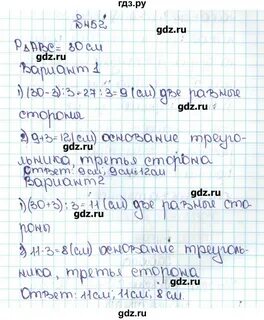 №452
P△ABC = 30см
Вариант 1
1) (30-3):3=27:3=9 (см) две разные
стороны
2) 9+3=12(см) основание треуго-
льника, третья сторона
Ответ: 9см; 9см; 12см
Вариант 2
1) (30+3):3=11(см) две разные сто-
роны
2) 11-3=8(см) основание треуголь-
ника, третья сторона
Ответ: 11см, 11см, 8см.